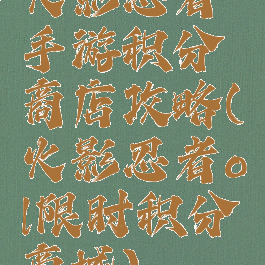 火影忍者
手游积分
商店攻略(
火影忍者。
l限时积分
商城)